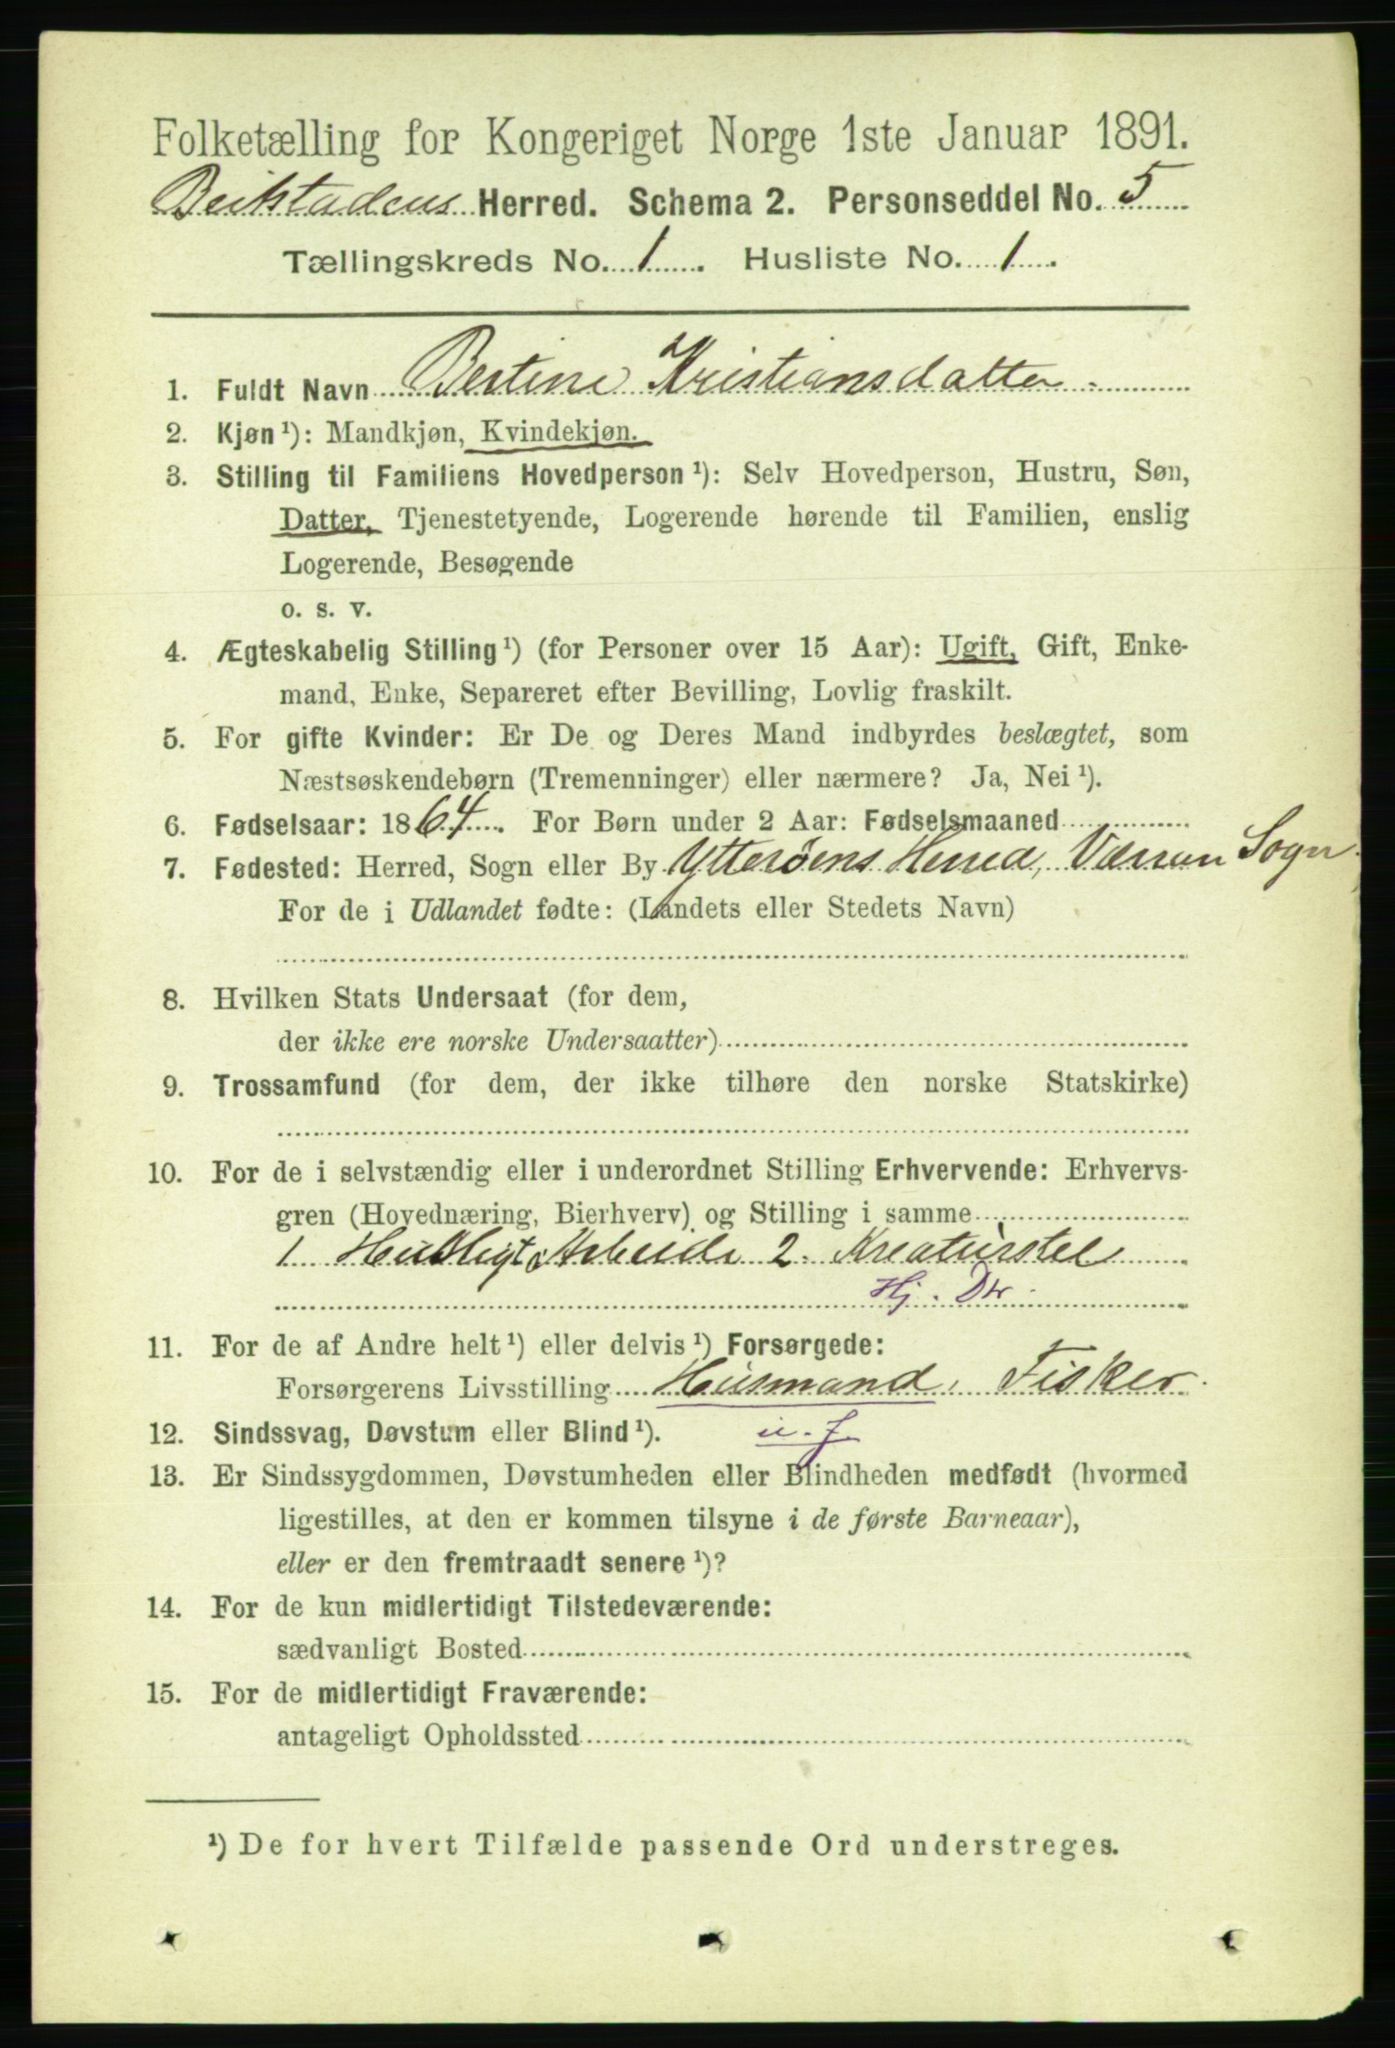 Folketælling for Kongeriget Norge 1ste Januar 1891.
Beitstadens Herred. Schema 2. Personseddel No. 5
Tællingskreds No. 1. Husliste No. 1.
1. Fuldt Navn Bertine Kristiansdatter.
2. Kjøn ¹): Mandkjøn, Kvindekjøn.
3. Stilling til Familiens Hovedperson ¹): Selv Hovedperson, Hustru, Søn,
Datter, Tjenestetyende, Logerende hørende til Familien, enslig
Logerende, Besøgende
o. s. v.
4. Ægteskabelig Stilling ¹) (for Personer over 15 Aar): Ugift, Gift, Enke-
mand, Enke, Separeret efter Bevilling, Lovlig fraskilt.
5. For gifte Kvinder: Er De og Deres Mand indbyrdes beslægtet, som
Næstsøskendebørn (Tremenninger) eller nærmere? Ja, Nei ¹).
6. Fødselsaar: 1864. For Børn under 2 Aar: Fødselsmaaned
7. Fødested: Herred, Sogn eller By Ytterøens Herred, Værran Sogn.
For de i Udlandet fødte: (Landets eller Stedets Navn)
8. Hvilken Stats Undersaat (for dem,
der ikke ere norske Undersaatter)
9. Trossamfund (for dem, der ikke tilhøre den norske Statskirke)
10. For de i selvstændig eller i underordnet Stilling Erhvervende: Erhvervs-
gren (Hovednæring, Bierhverv) og Stilling i samme
1. Husligt Arbeide 2. Kreaturstel
Hj. Dtr.
11. For de af Andre helt ¹) eller delvis ¹) Forsørgede:
Forsørgerens Livsstilling Husmand, Fisker.
12. Sindssvag, Døvstum eller Blind ¹). u. J.
13. Er Sindssygdommen, Døvstumheden eller Blindheden medfødt (hvormed
ligestilles, at den er kommen tilsyne i de første Barneaar),
eller er den fremtraadt senere ¹)?
14. For de kun midlertidigt Tilstedeværende:
sædvanligt Bosted
15. For de midlertidigt Fraværende:
antageligt Opholdssted
¹) De for hvert Tilfælde passende Ord understreges.